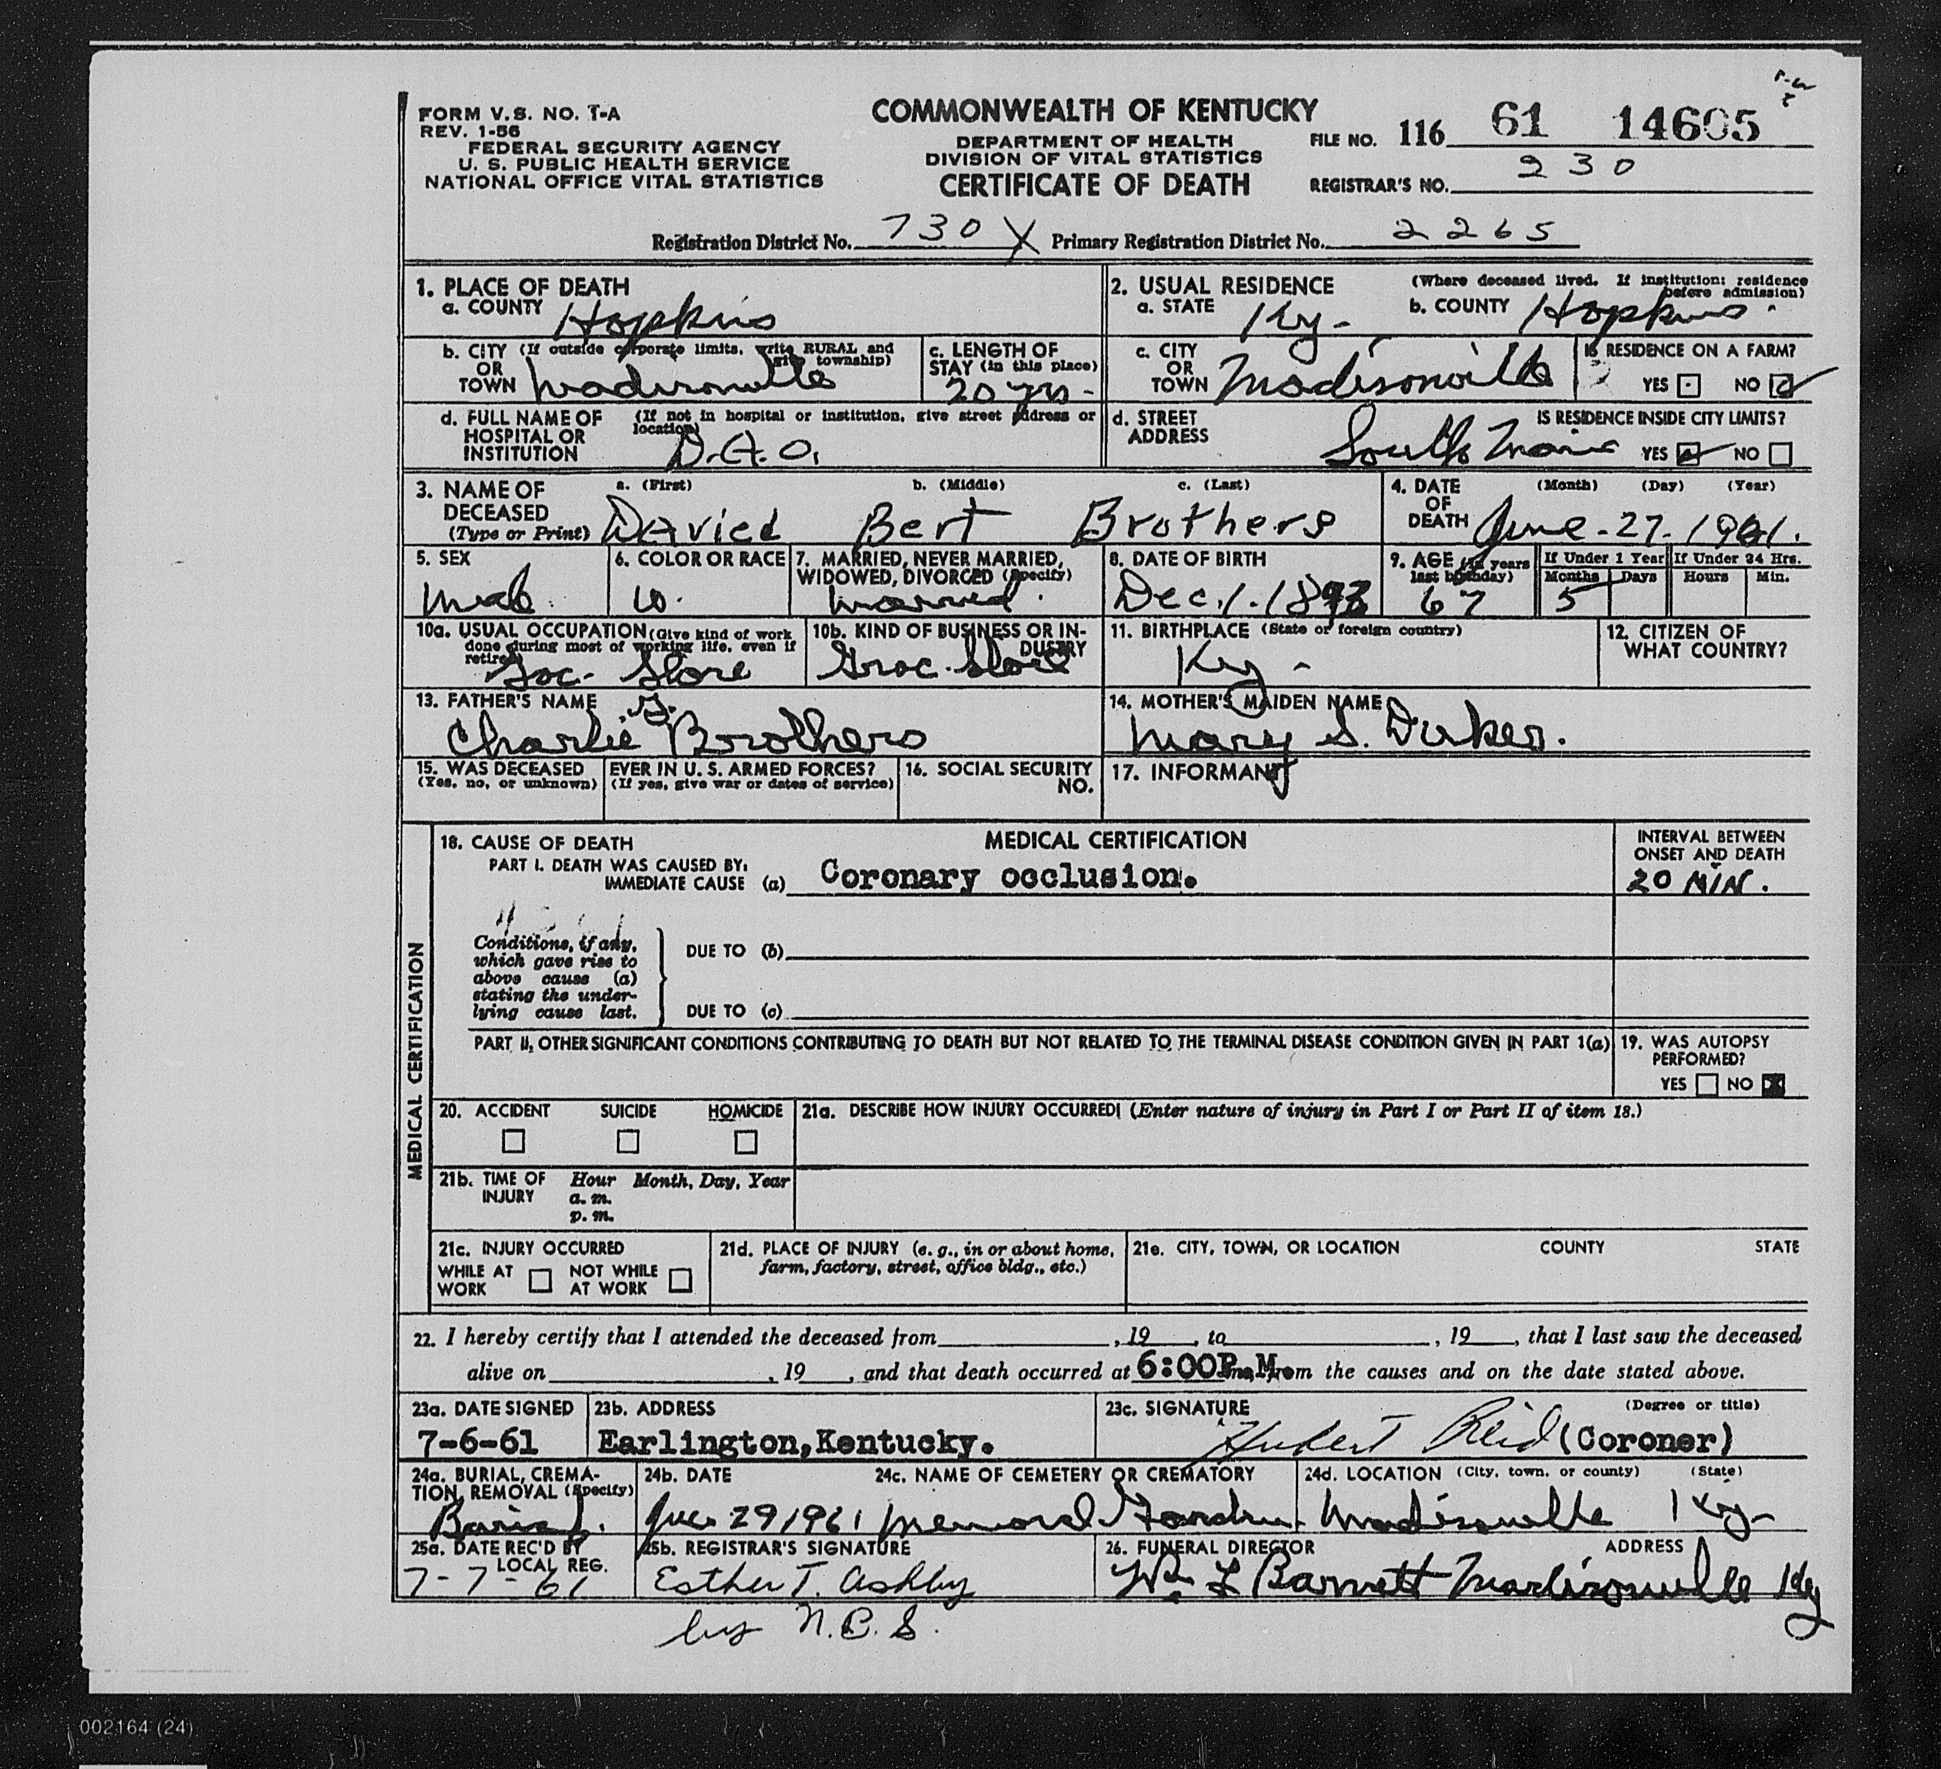 FORM V.S. NO. 1-A
REV. 1-56
FEDERAL SECURITY AGENCY
U. S. PUBLIC HEALTH SERVICE
NATIONAL OFFICE VITAL STATISTICS
COMMONWEALTH OF KENTUCKY
DEPARTMENT OF HEALTH
DIVISION OF VITAL STATISTICS
CERTIFICATE OF DEATH
FILE NO. 116 61 14605
REGISTRAR'S NO. 230
Registration District No. 730 X Primary Registration District No. 2265
1. PLACE OF DEATH
a. COUNTY Hopkins
2. USUAL RESIDENCE (Where deceased lived. If institution: residence before admission)
a. STATE Ky- b. COUNTY Hopkins.
b. CITY (If outside corporate limits, write RURAL and give township)
OR TOWN Madisonville
c. LENGTH OF STAY (in this place) 20 yrs-
c. CITY OR TOWN Madisonville
IS RESIDENCE ON A FARM? YES NO
d. FULL NAME OF HOSPITAL OR INSTITUTION (If not in hospital or institution, give street address or location) D.A.O.
d. STREET ADDRESS South Main
IS RESIDENCE INSIDE CITY LIMITS? YES NO
3. NAME OF DECEASED (Type or Print) a. (First) b. (Middle) c. (Last)
Davied Bert Brothers
4. DATE OF DEATH (Month) (Day) (Year)
June-27-1961.
5. SEX Male
6. COLOR OR RACE W.
7. MARRIED, NEVER MARRIED, WIDOWED, DIVORCED (Specify) Married.
8. DATE OF BIRTH Dec.1.1893
9. AGE (in years last birthday) 67
If Under 1 Year Months Days 5
If Under 24 Hrs. Hours Min.
10a. USUAL OCCUPATION (Give kind of work done during most of working life, even if retired) Groc- Store
10b. KIND OF BUSINESS OR INDUSTRY Groc. Store
11. BIRTHPLACE (State or foreign country) Ky-
12. CITIZEN OF WHAT COUNTRY?
13. FATHER'S NAME
Charlie Brothers
14. MOTHER'S MAIDEN NAME
Mary S. Duker.
15. WAS DECEASED EVER IN U. S. ARMED FORCES?
(Yes, no, or unknown) (If yes, give war or dates of service)
16. SOCIAL SECURITY NO.
17. INFORMANT
MEDICAL CERTIFICATION
18. CAUSE OF DEATH
MEDICAL CERTIFICATION
INTERVAL BETWEEN ONSET AND DEATH
PART I. DEATH WAS CAUSED BY:
IMMEDIATE CAUSE (a) Coronary occlusion. 20 MIN.
Conditions, if any, which gave rise to above cause (a) stating the underlying cause last.
DUE TO (b)
DUE TO (c)
PART II, OTHER SIGNIFICANT CONDITIONS CONTRIBUTING TO DEATH BUT NOT RELATED TO THE TERMINAL DISEASE CONDITION GIVEN IN PART 1(a)
19. WAS AUTOPSY PERFORMED?
YES NO
20. ACCIDENT SUICIDE HOMICIDE
21a. DESCRIBE HOW INJURY OCCURRED (Enter nature of injury in Part I or Part II of item 18.)
21b. TIME OF INJURY Hour Month, Day, Year
a. m.
p. m.
21c. INJURY OCCURRED
WHILE AT WORK NOT WHILE AT WORK
21d. PLACE OF INJURY (e. g., in or about home, farm, factory, street, office bldg., etc.)
21e. CITY, TOWN, OR LOCATION COUNTY STATE
22. I hereby certify that I attended the deceased from , 19 , to , 19 , that I last saw the deceased
alive on , 19 , and that death occurred at 6:00P.M. from the causes and on the date stated above.
23a. DATE SIGNED 7-6-61
23b. ADDRESS Earlington,Kentucky.
23c. SIGNATURE (Degree or title)
Hubert Reid (Coroner)
24a. BURIAL, CREMATION, REMOVAL (Specify) Burial.
24b. DATE June 29 1961
24c. NAME OF CEMETERY OR CREMATORY Memorial Garden
24d. LOCATION (City, town, or county) (State)
Madisonville Ky-
25a. DATE REC'D BY LOCAL REG. 7-7-61
25b. REGISTRAR'S SIGNATURE
Esther T. Ashby
by N.C.S.
26. FUNERAL DIRECTOR ADDRESS
Wm L Barnett Madisonville Ky
002164 (24)